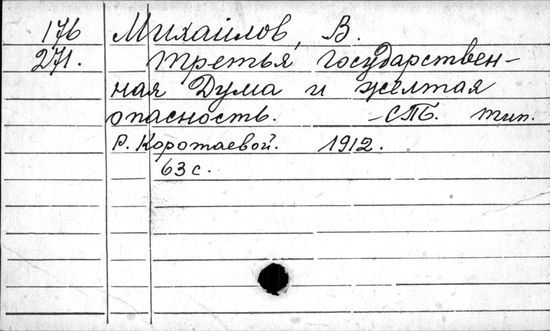 176 Михайлов, В.
271. Третья государствен-
ная Дума и жёлтая
опасность. -СПБ. тип.
Р. Коротаевой. 1912.
63 с.